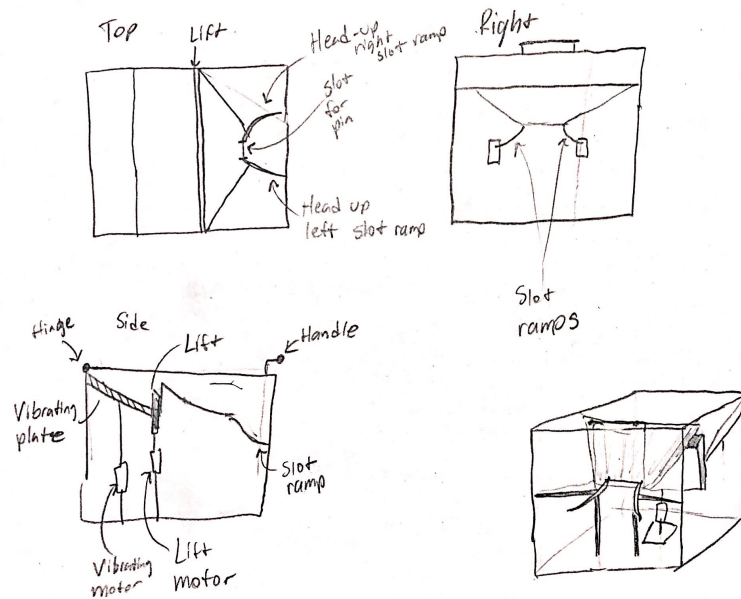 Top
Lift
Head-up
right
slot ramp
slot
for
pin
Head up
left slot ramp
Right
Slot
ramps
Side
Hinge
Lift
Handle
Vibrating
plate
Slot
ramp
Vibrating
motor
Lift
motor